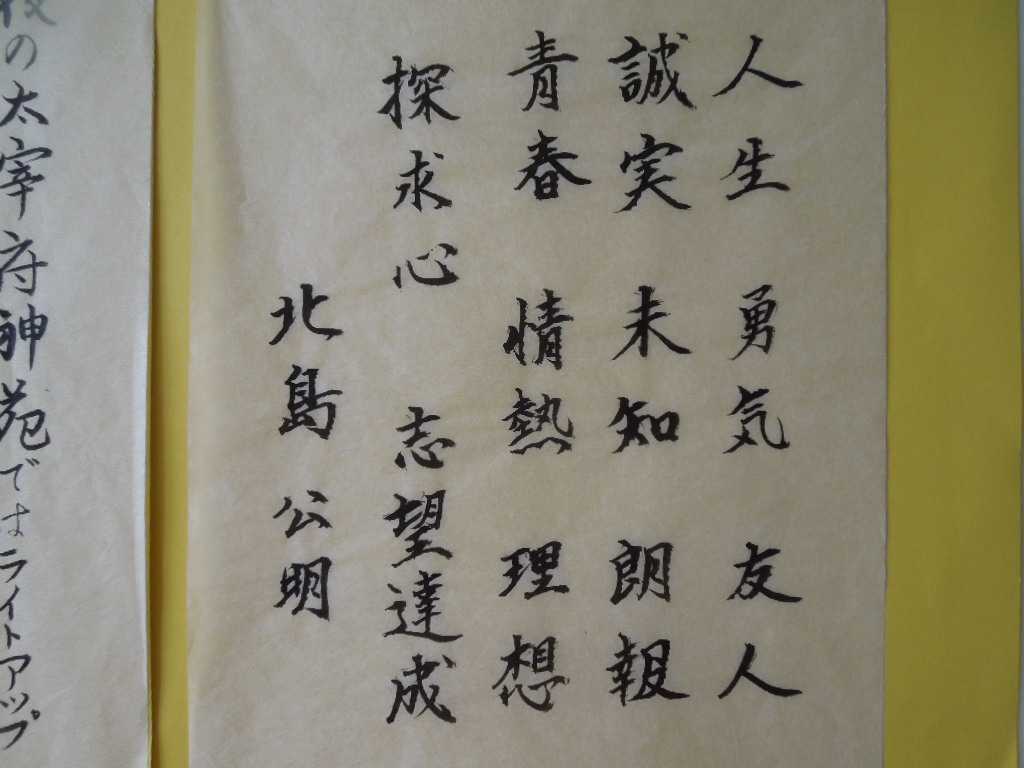 人生 勇気 友人
誠実 未知 朗報
青春 情熱 理想
探求心 志望達成
北島 公明
の太宰府神苑ではライトアップ